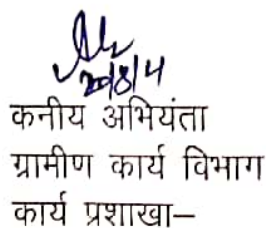 कनीय अभियंता
ग्रामीण कार्य विभाग
कार्य प्रशाखा–